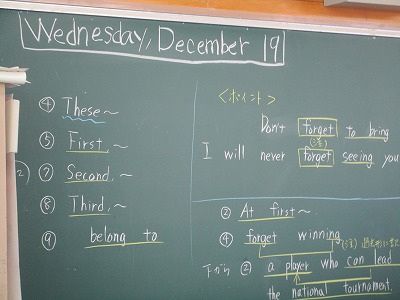 Wednesday, December 19
④ These~
⑤ First,
⑦ Second,
⑧ Third,
⑨ belong to
2)
<ポイント>
Don't forget to bring
(注)
I will never forget seeing you
② At first~
④ forget winning
(注)
下から ② a player who can lead
the national tournament.